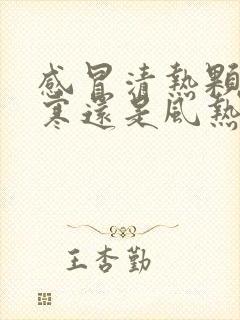 感冒清熱顆
寒還是風熱
王杏勤